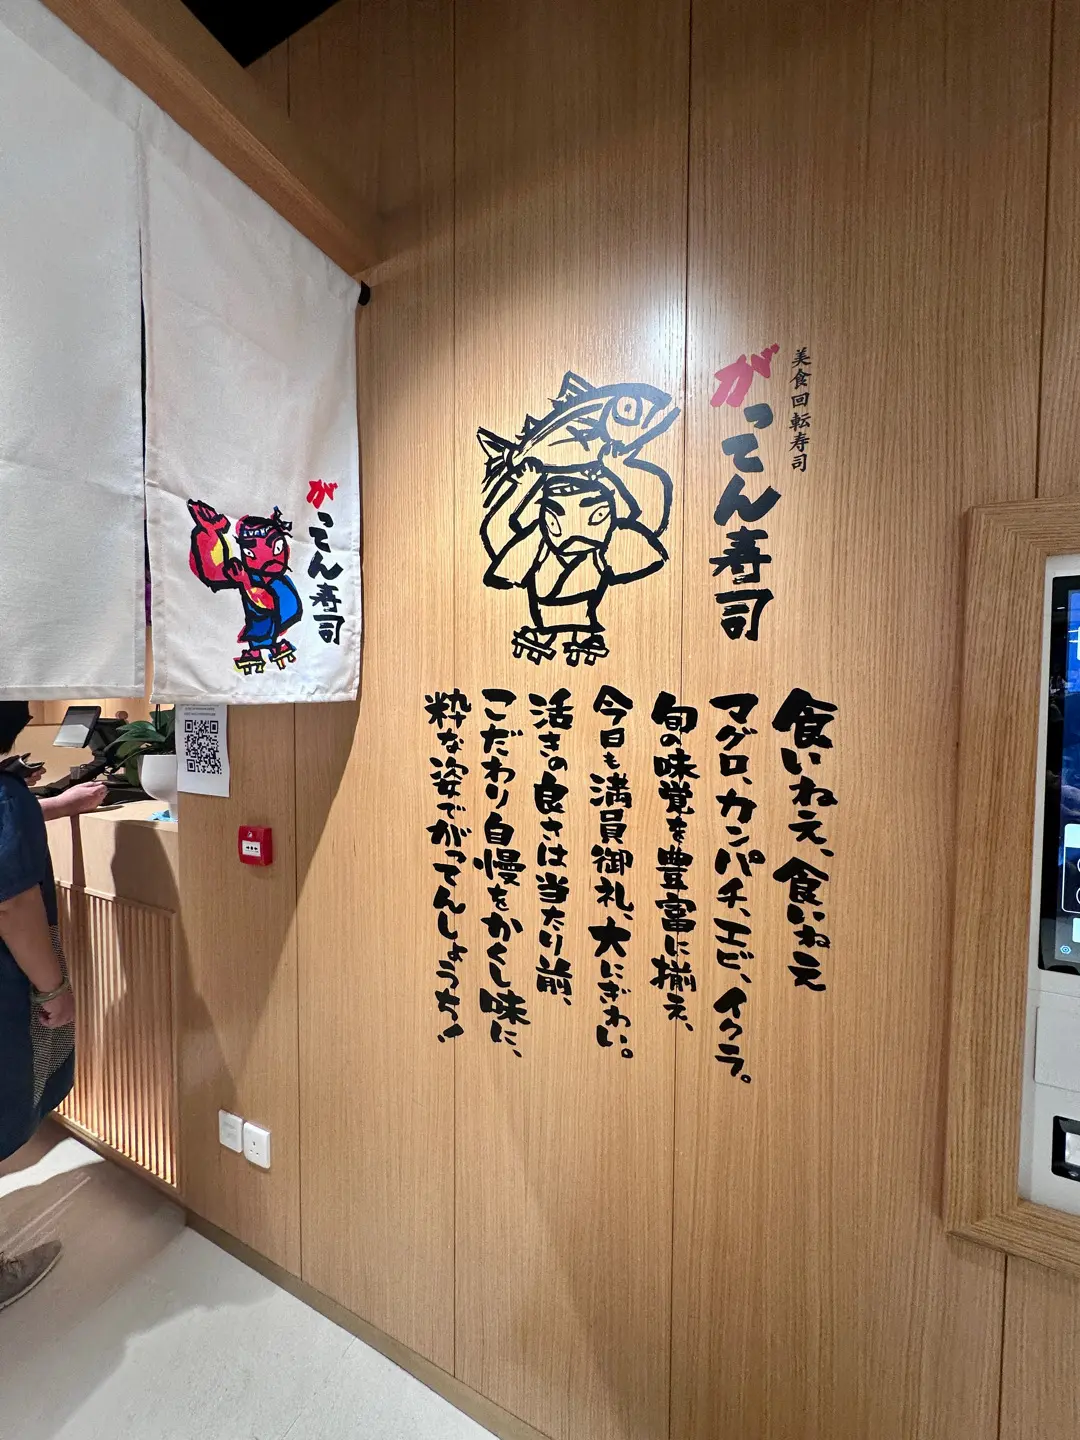 美食回転寿司
がってん寿司
食いねえ、食いねえ
マグロ、カンパチ、エビ、イクラ。
旬の味覚を豊富に揃え、
今日も満員御礼、大にぎわい。
活きの良さは当たり前、
こだわり自慢をかくし味に、
粋な姿でがってんしょうち!
がってん寿司